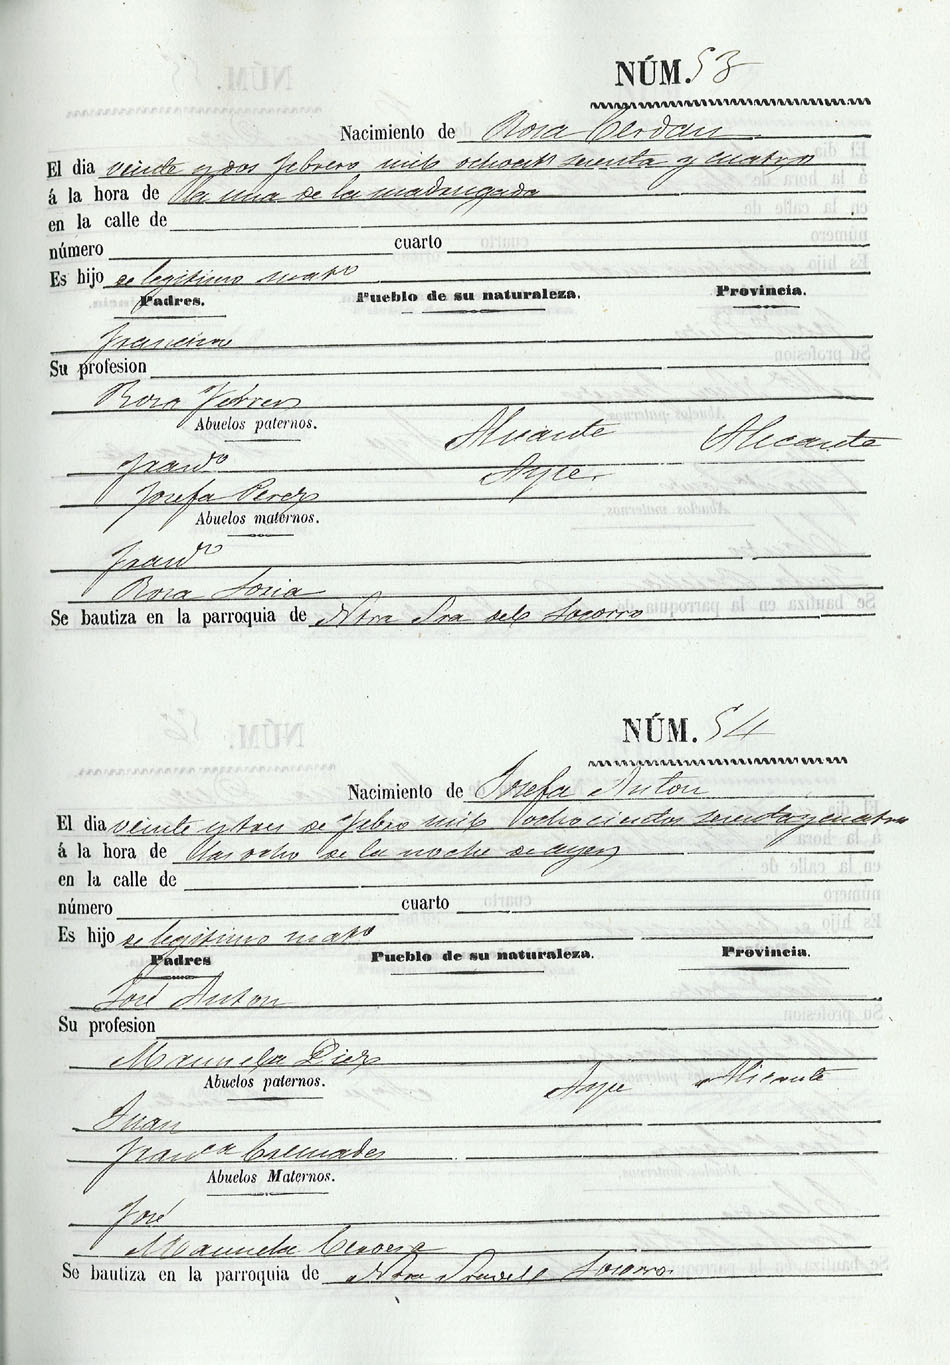 NÚM. 53
Nacimiento de Rosa Cerdan
El dia veinte y dos febrero mil ochocts sesenta y cuatro
á la hora de la una de la madrugada
en la calle de
número cuarto
Es hijo de legitimo mato
Padres. Pueblo de su naturaleza. Provincia.
Francisco
Su profesion
Rosa Ferrer
Abuelos paternos. Alicante Alicante
Franco
Josefa Perez Aspe
Abuelos maternos.
Franco
Rosa Soria
Se bautiza en la parroquia de Ntra Sra del Socorro
NÚM. 54
Nacimiento de Josefa Anton
El dia veinte y tres de Febro mil ochocientos sesenta y cuatro
á la hora de las ocho de la noche de ayer
en la calle de
número cuarto
Es hijo de legitimo mato
Padres Pueblo de su naturaleza. Provincia.
José Anton
Su profesion
Manuela Diez
Abuelos paternos. Aspe Alicante
Juan
Franca Cremades
Abuelos Maternos.
José
Manuela Cervera
Se bautiza en la parroquia de Ntra Sra del Socorro